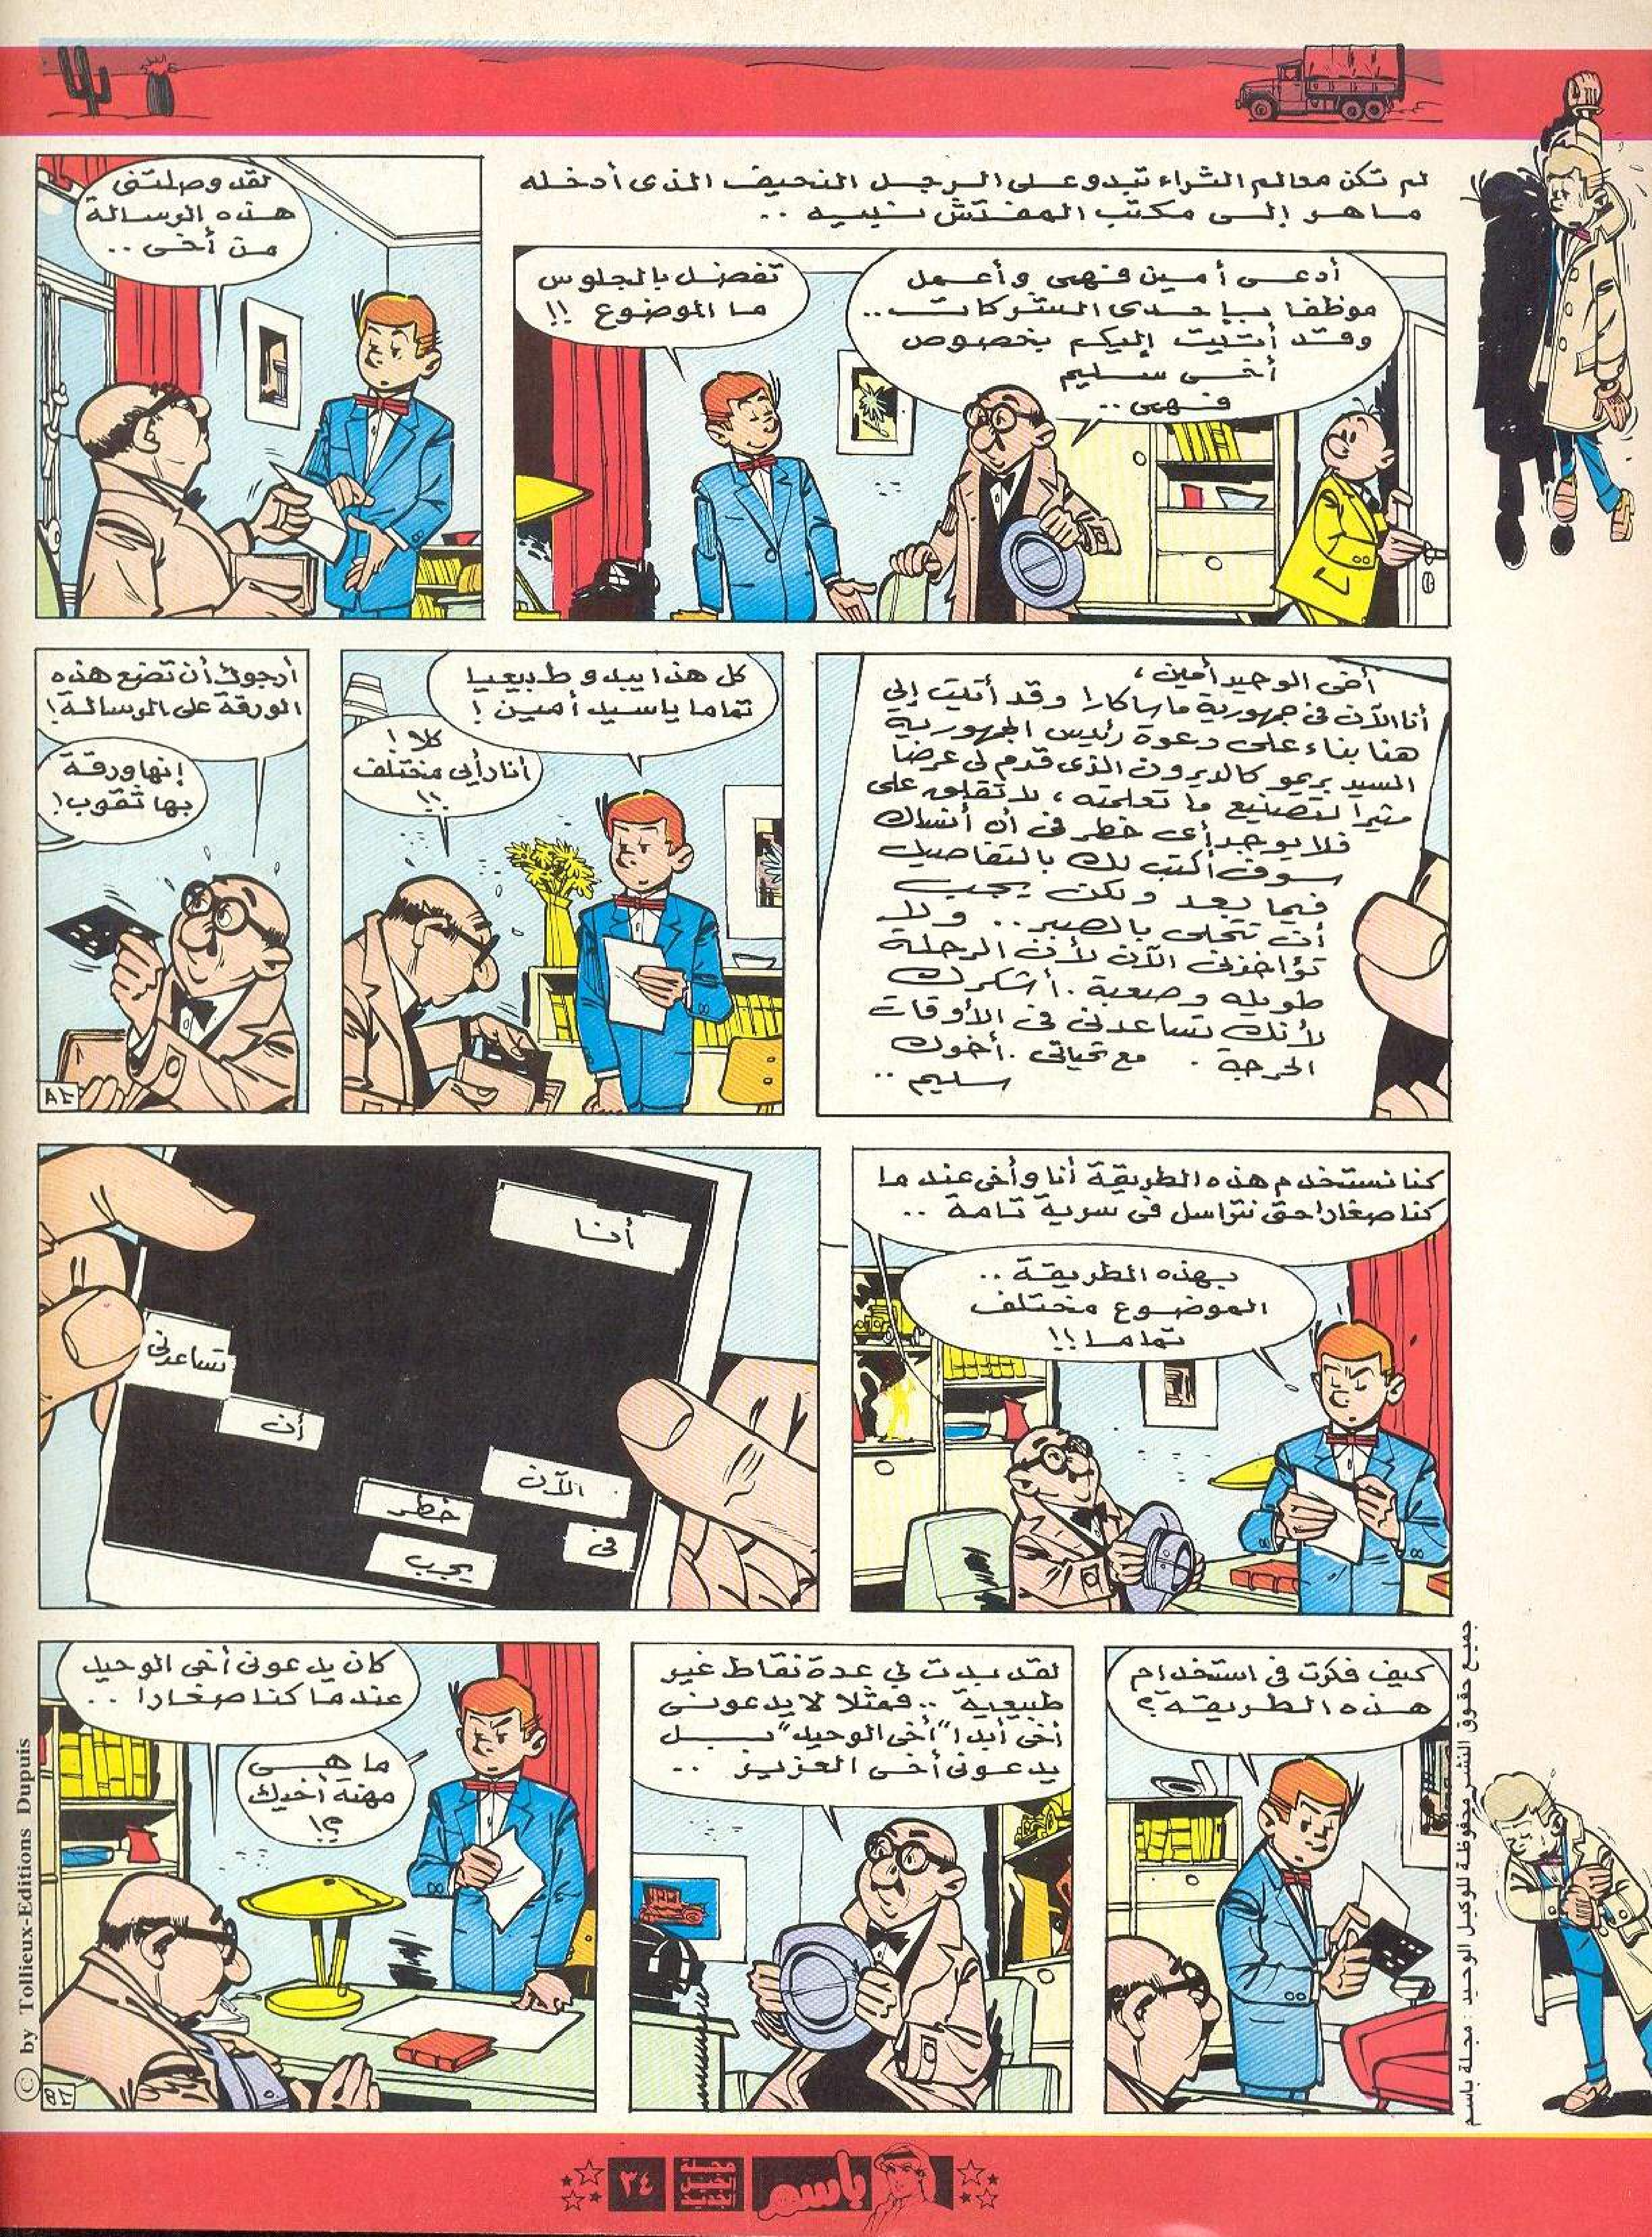 لم تكن معالم الثراء تبدو على الرجل النحيف الذى أدخله
ماهر إلى مكتب المفتش نبيه ..
أدعى أمين فهمى وأعمل
موظفا بإحدى الشركات ..
وقد أتيت إليكم بخصوص
أخى سليم
فهمى ..
تفضل بالجلوس
ما الموضوع !!
لقد وصلتنى
هذه الرسالة
من أخى ..
أخى الوحيد أمين ،
أنا الآن فى جمهورية ماساكارا وقد أتيت إلى
هنا بناء على دعوة رئيس الجمهورية
السيد بريمو كالديرون الذى قدم لى عرضا
مثيرا لتصنيع ما تعلمته ، لا تقلق على
فلا يوجد أى خطر فى أن أنساك
سوف أكتب لك بالتفاصيل
فيما بعد ولكن يجب
أن تتحلى بالصبر .. ولا
تؤاخذنى الآن لأن الرحلة
طويله وصعبة . أشكرك
لأنك تساعدنى فى الأوقات
الحرجة . مع تحياتى . أخوك
سليم ..
كل هذا يبدو طبيعيا
تماما ياسيد أمين !
كلا !
أنا رأيى مختلف
!!
أرجوك أن تضع هذه
الورقة على الرسالة !
إنها ورقة
بها ثقوب !
٢A
كنا نستخدم هذه الطريقة أنا وأخى عند ما
كنا صغارا حتى نتراسل فى سرية تامة ..
بهذه الطريقة ..
الموضوع مختلف
تماما !!
أنا
تساعدنى
أن
الآن
خطر
فى
يجب
كيف فكرت فى استخدام
هذه الطريقة ؟
لقد بدت لى عدة نقاط غير
طبيعية .. فمثلا لا يدعونى
أخى أبدا "أخى الوحيد" بل
يدعونى أخى العزيز ..
كان يدعونى أخى الوحيد
عندما كنا صغارا ..
ما هى
مهنة أخيك
؟!
٢B
© by Tollieux-Editions Dupuis
جميع حقوق النشر محفوظة للوكيل الوحيد : مجلة باسم
باسم
مجلة
الجيل
الجديد
٣٤